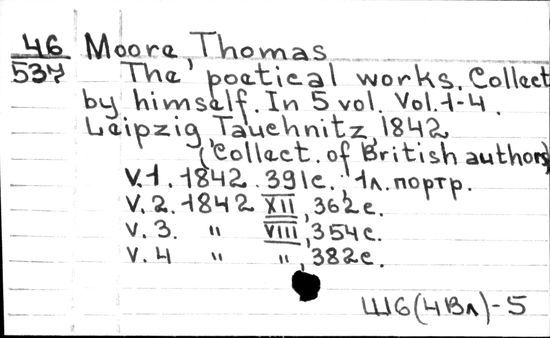 46 Moore, Thomas
537 The poetical works. Collect
by himself. In 5 vol. Vol. 1-4.
Leipzig, Tauchnitz, 1842
(Collect. of British authors)
V. 1. 1842. 391с., 1л. портр.
V. 2. 1842 XII, 362с.
V. 3. " VIII, 354с.
V. 4 " ", 382с.
Ш6(4Вл)-5